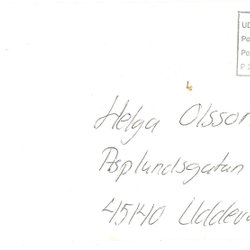 UD
Po
Po
P
Helga Olsson
Asplundsgatan
45140 Uddeva